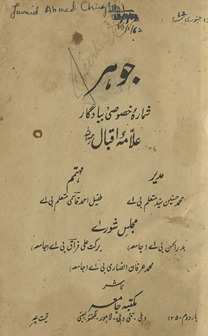 Jamid Ahmed Chughtai
جوہر
شمارۂ خصوصی بیادگار
علامہ اقبال
مدیر مہتمم
محمد حسنین سید متعلم بی اے طفیل احمد قاسمی متعلم بی اے
مجلس شورائے
بدر الحسن بی اے (جامعہ) برکت علی فراق بی اے (جامعہ)
محمد عرفان انصاری بی اے (جامعہ)
ناشر
مکتبہ جامعہ
دہلی نئی دہلی لاہور لکھنؤ بمبئی
بار دوم ۱۲۵۰